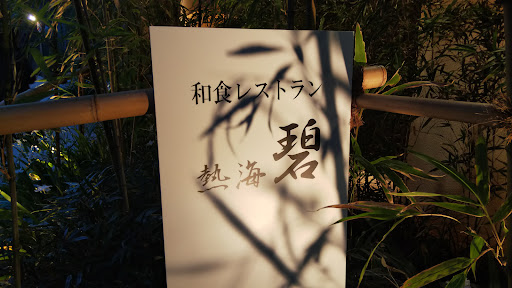 和食レストラン
熱海 碧